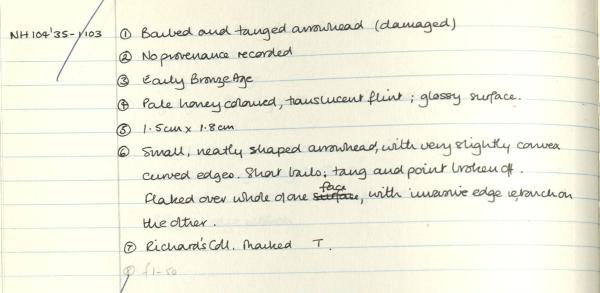 NH104'35-1103 ① Barbed and tanged arrowhead (damaged)
② No provenance recorded
③ Early Bronze Age
④ Pale honey coloured, translucent flint; glossy surface.
⑤ 1.5cm x 1.8cm
⑥ Small, neatly shaped arrowhead, with very slightly convex
curved edges. Short barbs; tang and point broken off.
Flaked over whole of one surface face, with invasive edge retouch on
the other.
⑦ Richard's Coll. Marked T.
⑧ £1-50